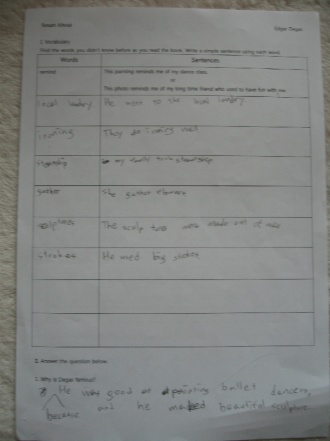 Edgar Degas
1. Vocabulary
Find the words you didn't know before as you read the book. Write a simple sentence using each word.
Words Sentences
remind This painting reminds me of my dance class.
or
This photo reminds me of my long time friend who used to have fun with me.
local He went to the local
They well
my family
gather She gather flowers
The sculp tures were made out of wax
strokes He used big strokes
2. Answer the question below.
1. Why is Degas famous?
He was good at painting ballet dancers,
because and he maked beautiful sculpture